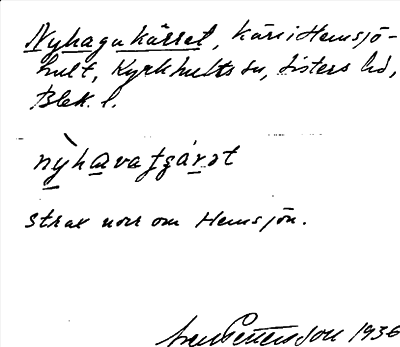 Nyhagakärret, kärr i Hemsjö-
hult, Kyrkhults sn, Listers hd,
Blek. l.
nỳhavatʃárət
strax norr om Hemsjön.
Pettersson 1936